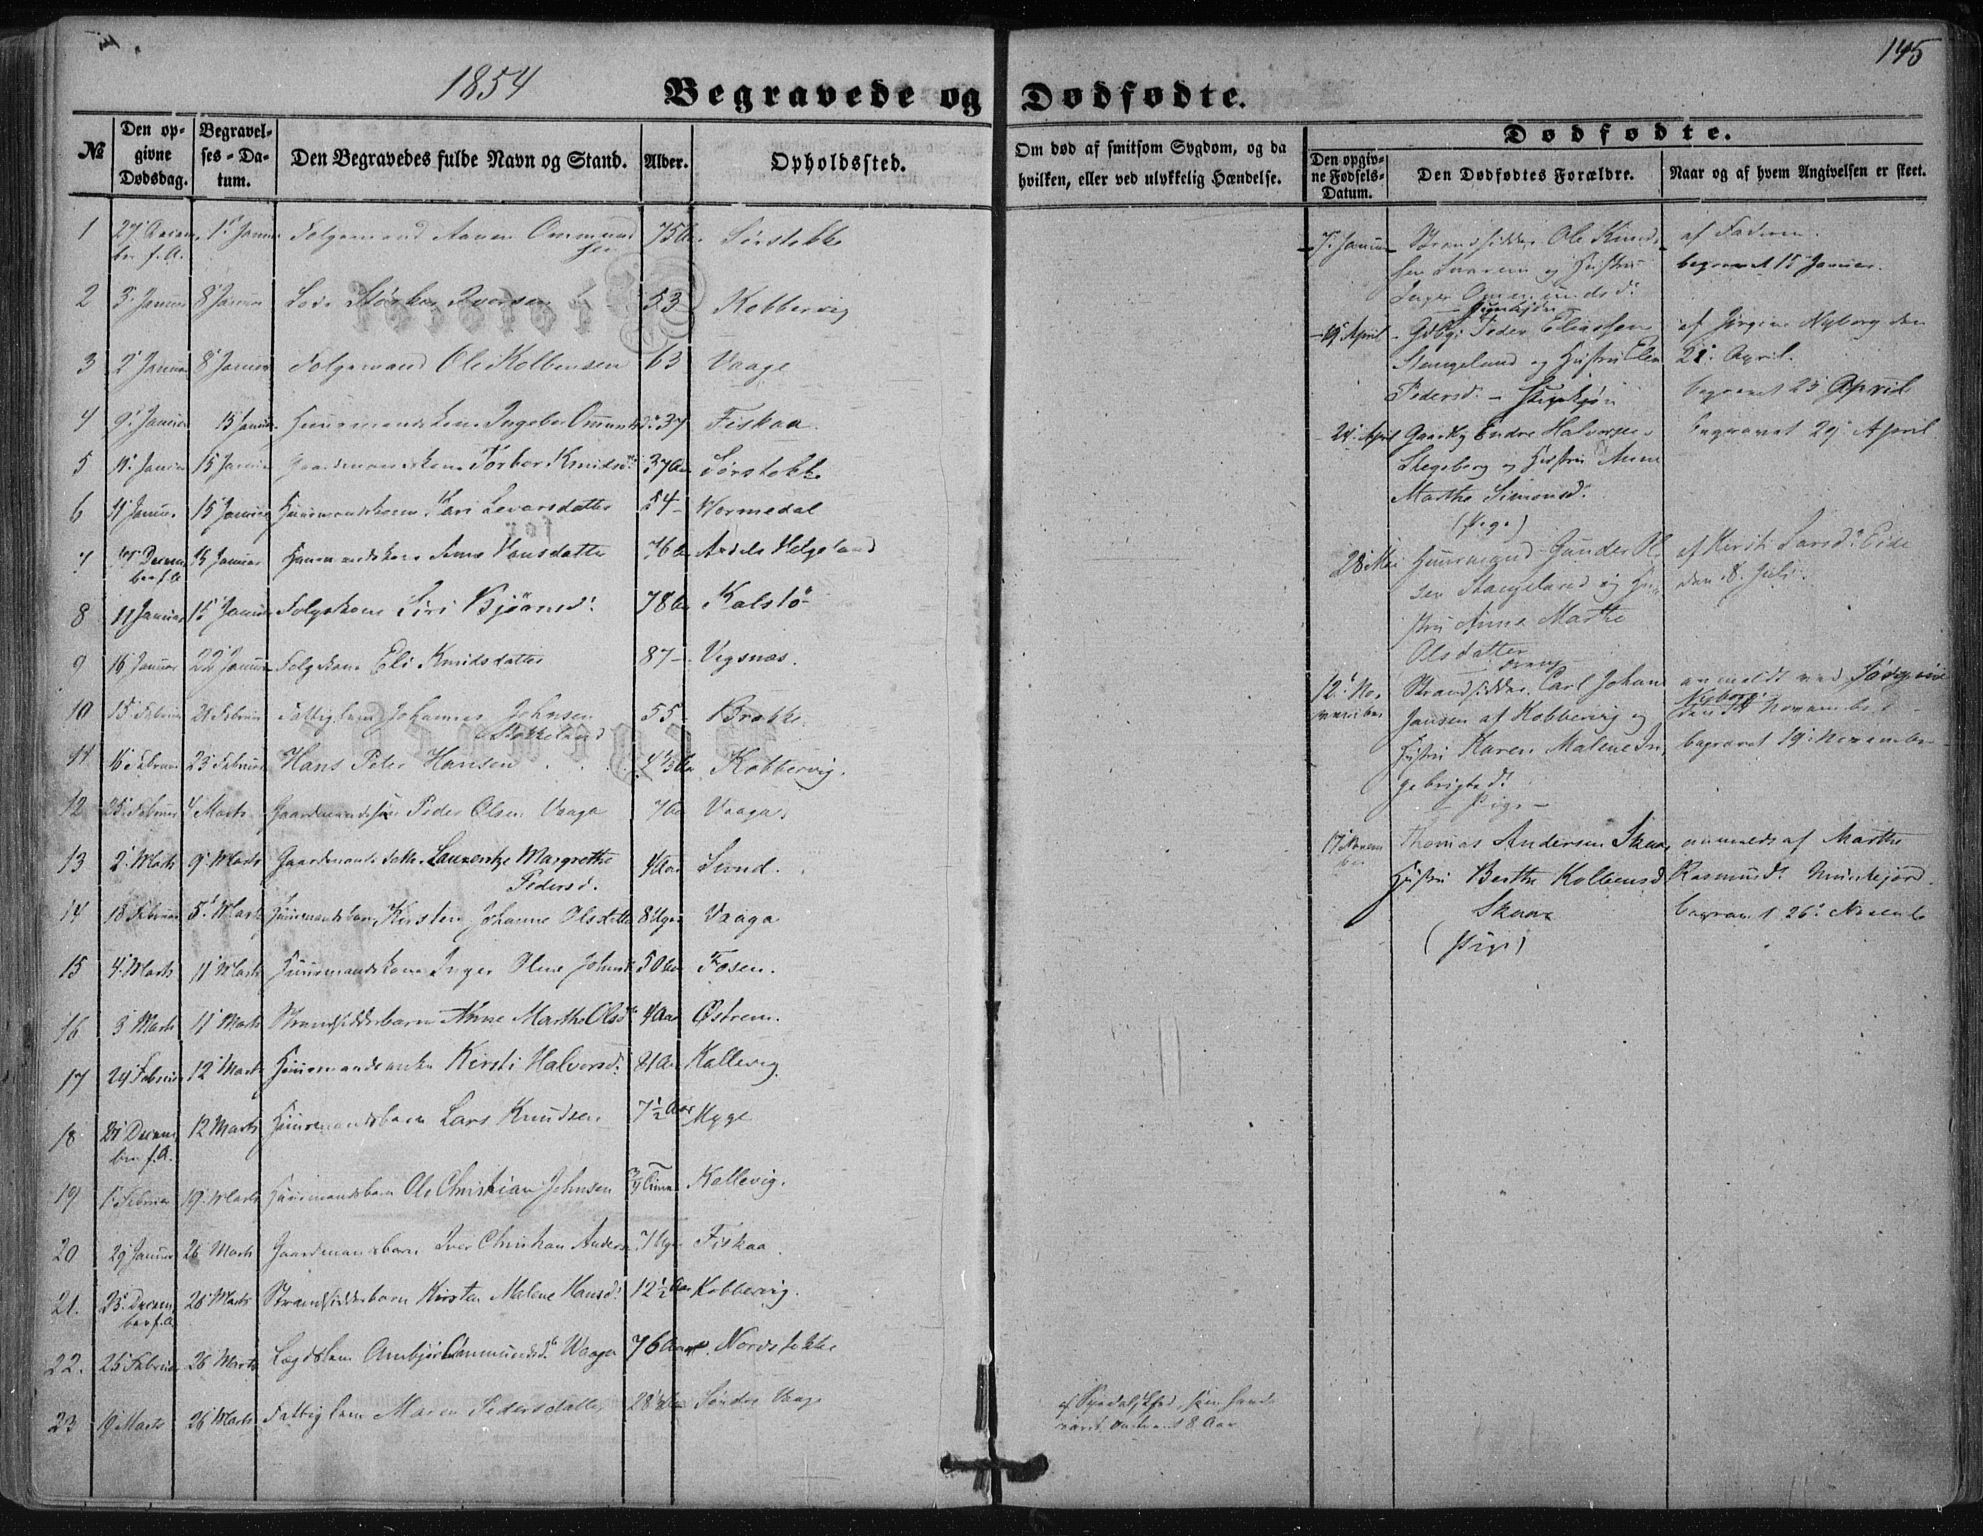 145
1854
Begravede og Dødfødte.
№
Den opgivne Dødsdag.
Begravelses-Datum.
Den Begravedes fulde Navn og Stand.
Alder.
Opholdssted.
Om død af smitsom Sygdom, og da hvilken, eller ved ulykkelig Hændelse.
Dødfødte.
Den opgivne Fødsels-Datum.
Den Dødfødtes Forældre.
Naar og af hvem Angivelsen er skeet.
1 27 Decem 1 Januar Folgemand Ommund 75 Aar Sørstokke
ber f.A. sen
2 3 Januar 8 Januar Iversen 53 Kobbervig
3 2 Januar 8 Januar Folgemand Ole Kolbensen 63 Vaage
4 9 Januar 15 Januar Huusmandskone Ingebor 37 Fiskaa
5 11 Januar 15 Januar Gaardmandskone Torbor Knudsd. 37 Aar Sørstokke
6 11 Januar 15 Januar Huusmandskone Kari Levarsdatter 54 Wormedal
7 Decem 15 Januar Huusmandskone Hansdatter 76 Aar Helgeland
ber f.A.
8 11 Januar 15 Januar Folgekone Siri Bjørnsd. 78 Aar Kalstø
9 16 Januar 22 Januar Folgekone Eli Knudsdatter 87 Vigsnæs.
10 15 Februar 21 Februar Fattiglem Johannes Johnsen 55 Brække
Stokkeland
11 16 Februar 23 Februar Hans Peter Hansen 4 1/3 Aar Kobbervig.
12 25 Februar 4 Marts Gaardmandssøn Peder Olsen Vaage 7 Aar Vaage.
13 2 Marts 9 Marts Gaardmandsdatter Laurentze Margrethe 4 Aar Sund.
Pedersd.
14 18 Februar 5 Marts Huusmandsbarn Kirsten Johanne Olsdatter 8 Uger Vaage
15 4 Marts 11 Marts Huusmandskone Inger Oline Johnsd 50 Aar Fosen.
16 3 Marts 11 Marts Strandsidderbarn Anne Marthe Olsd 4 Aar Østrem.
17 24 Februar 12 Marts Huusmandsenke Kirsti Halvorsd. Aar Kallevig
18 21 Decem 12 Marts Huusmandsbarn Lars Knudsen 7 1/2 Aar Myge
ber f.A.
19 1 Februar 19 Marts Huusmandsbarn Ole Christian Johnsen Kallevig.
20 29 Januar 26 Marts Gaardmandsbarn Iver Christian Anders 7 Uger Fiskaa
21. 25 Decem 26 Marts Strandsidderbarn Kirsten Malene Hansd. 12 1/2 Aar Kobbervig.
ber f.A.
22. 25 Februar 26 Marts Lægdslem Ommundsd. Vaage 76 Aar Nordstokke
23 19 Marts 26 Marts Fattiglem Maren Pedersdatter 28 Aar Søndre Vaage
8 Aar
7 Januar Strandsidder Ole Knud af Faderen.
sen og Hustru begravet 15 Januar.
Inger Ommundsd.
19 April Peder Eliassen af Jørgine Nyborg den
Stangeland og Hustru Elen 21. April.
Pedersd. begravet 23 April
24 April Gaardbr Endre Halvorsen begravet 29 April
og Hustru Anne
Marthe Simonsd.
(Pige)
28 Mai Huusmand Gunder Ol af Larsd. Eide
sen Stangeland og Hu den 8. Juli.
stru Anne Marthe
Olsdatter
Dreng
12 No Strandsidder Carl Johan anmeldt ved
vember Jansen af Kobbervig og Nyborg November
Hustru Karen Malene In begravet 19 November
gebrigtsd.
Pige
17 Novem Thomas Andersen Skaar anmeldt af Marthe
ber Hustru Berthe Kolbensd Rasmusd.
Skaar begravet 26 Novemb
(Pige)